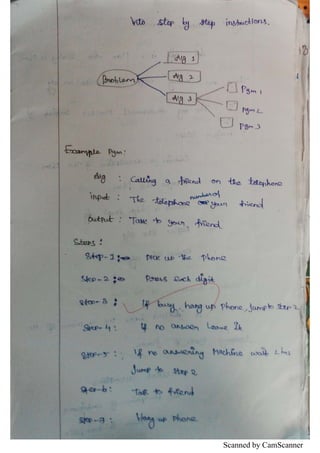 into step by step instructions.
Alg 1
Problem
Alg 2
Alg 3
Pgm 1
Pgm 2
Pgm 3
Example Pgm:
Alg : Calling a friend on the telephone
input : The telephone number of your friend
output : Talk to your friend
Steps :
Step-1 : Pick up the phone
Step-2 : Press each digit
Step-3 : If busy, hang up phone, Jump to Step 2
Step-4 : If no answer leave it
Step-5 : If no answering Machine wait 2 hrs
Jump to Step 2
Step-6 : Talk to friend
Step-7 : Hang up phone
Scanned by CamScanner